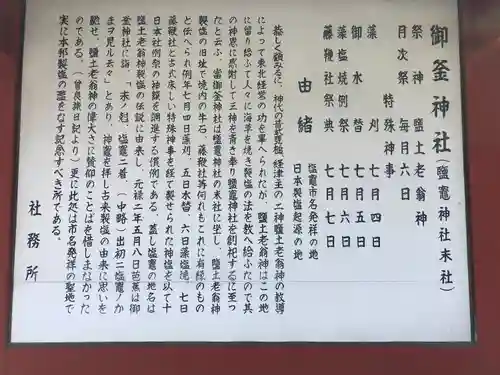 御釜神社(鹽竈神社末社)
祭神 鹽土老翁神
月次祭 毎月六日
特殊神事
藻刈 七月四日
御水替 七月五日
藻塩焼例祭 七月六日
藤鞭社祭典 七月七日
塩竈市名発祥の地
日本製塩起源の地
由緒
恭しく顧みるに、神代の昔武甕槌、経津主の二神鹽土老翁神の教導
によって東北経営の功を畢へられたが、鹽土老翁神はこの地
に留り給ふて人々に海草を焼き製塩の法を教へ給ふたので其
の神恩に感謝して三神を斉き奉り鹽竈神社を創祀するに至っ
たと云ふ、當御釜神社は鹽竈神社の末社に坐し、鹽土老翁神
製塩の旧址で境内の牛石、藤鞭社等何れもこれに有縁のもの
と伝へられ例年七月四日藻刈、五日水替、六日藻塩焼、七日
藤鞭社と古式床しい特殊神事を経て製せられた神塩を以て十
日本社例祭の神饌を調進する慣例である。蓋し塩竈の地名は
鹽土老翁神製塩の伝説に由来し、元禄二年五月八日芭蕉は御
釜神社に詣、「末ノ尅、塩竈ニ着(中略)出初ニ塩竈ノか
まヲ見ル云々」とあり、神竈を拝し古来製塩の由来に思いを
馳せ、鹽土老翁神の偉大さに賛仰のことばを惜しまなかった
のである。(曽良随日記より)更に此処は市名発祥の聖地で
実に本邦製塩の濫をなす記念すべき所である。
社務所